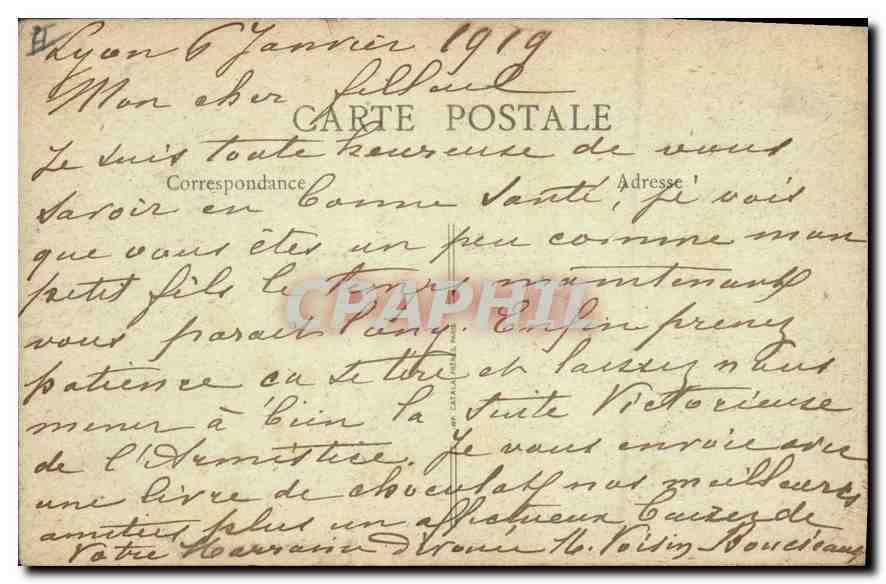 Lyon 6 Janvier 1919
Mon cher filleul
CARTE POSTALE
Je suis toute heureuse de vous
Correspondance Adresse
savoir en bonne santé, je vois
que vous êtes un peu comme mon
petit fils le temps maintenant
CPAPHIL
vous parait long. Enfin prenez
patience ca se tire et laissez nous
mener à bien la suite Victorieuse
IMP. CATALA FRÈRES, PARIS
de l'Armistice. Je vous envoie avec
une livre de chocolat nos meilleures
amitiés plus un affectueux baiser de
Votre Marraine dévouée Voisin